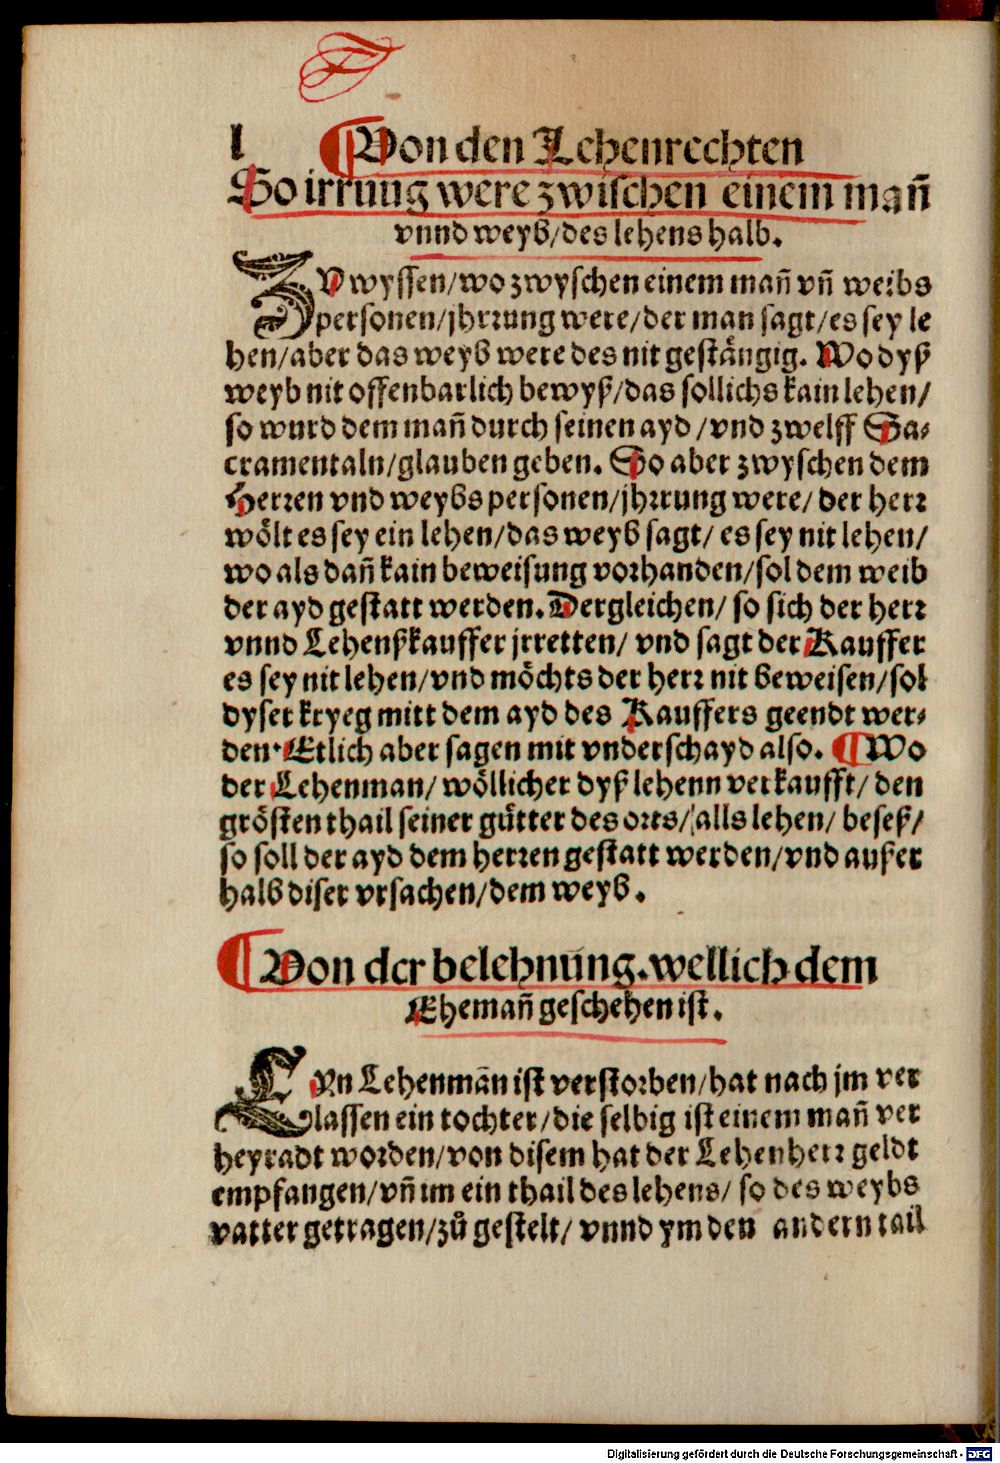 I ¶Von den Lehenrechten
So irrung were zwischen einem mañ
vnnd weyb/des lehens halb.
ZV wyssen/wo zwyschen einem mañ vñ weibs
personen/jhrrung were/der man sagt/es sey le
hen/aber das weyb were des nit gestängig. Wo dyß
weyb nit offenbarlich bewyß/das sollichs kain lehen/
so wurd dem mañ durch seinen ayd/vnd zwelff Sa⸗
cramentaln/glauben geben. So aber zwyschen dem
Herren vnd weybs personen/jhrrung were/ der herr
wölt es sey ein lehen/das weyb sagt/ es sey nit lehen/
wo als dañ kain beweisung vorhanden/sol dem weib
der ayd gestatt werden. Dergleichen/ so sich der herr
vnnd Lehenßkauffer jrretten/ vnd sagt der Kauffer
es sey nit lehen/vnd möchts der herr nit beweisen/sol
dyser kryeg mitt dem ayd des Kauffers geendt wer⸗
den. Etlich aber sagen mit vnderschayd also. ¶Wo
der Lehenman/ wöllicher dyß lehenn verkaufft/ den
grösten thail seiner gütter des orts/ alls lehen/ beseß/
so soll der ayd dem herren gestatt werden/vnd ausser
halb diser vrsachen/dem weyb.
¶Von der belehnūng.wellich dem
Ehemañ geschehen ist.
EYn Lehenmān ist verstorben/hat nach jm ver
lassen ein tochter/die selbig ist einem mañ ver
heyradt worden/von disem hat der Lehenherr geldt
empfangen/vñ im ein thail des lehens/ so des weybs
vatter getragen/zů gestelt/ vnnd ym den andern tail
Digitalisierung gefördert durch die Deutsche Forschungsgemeinschaft - DFG